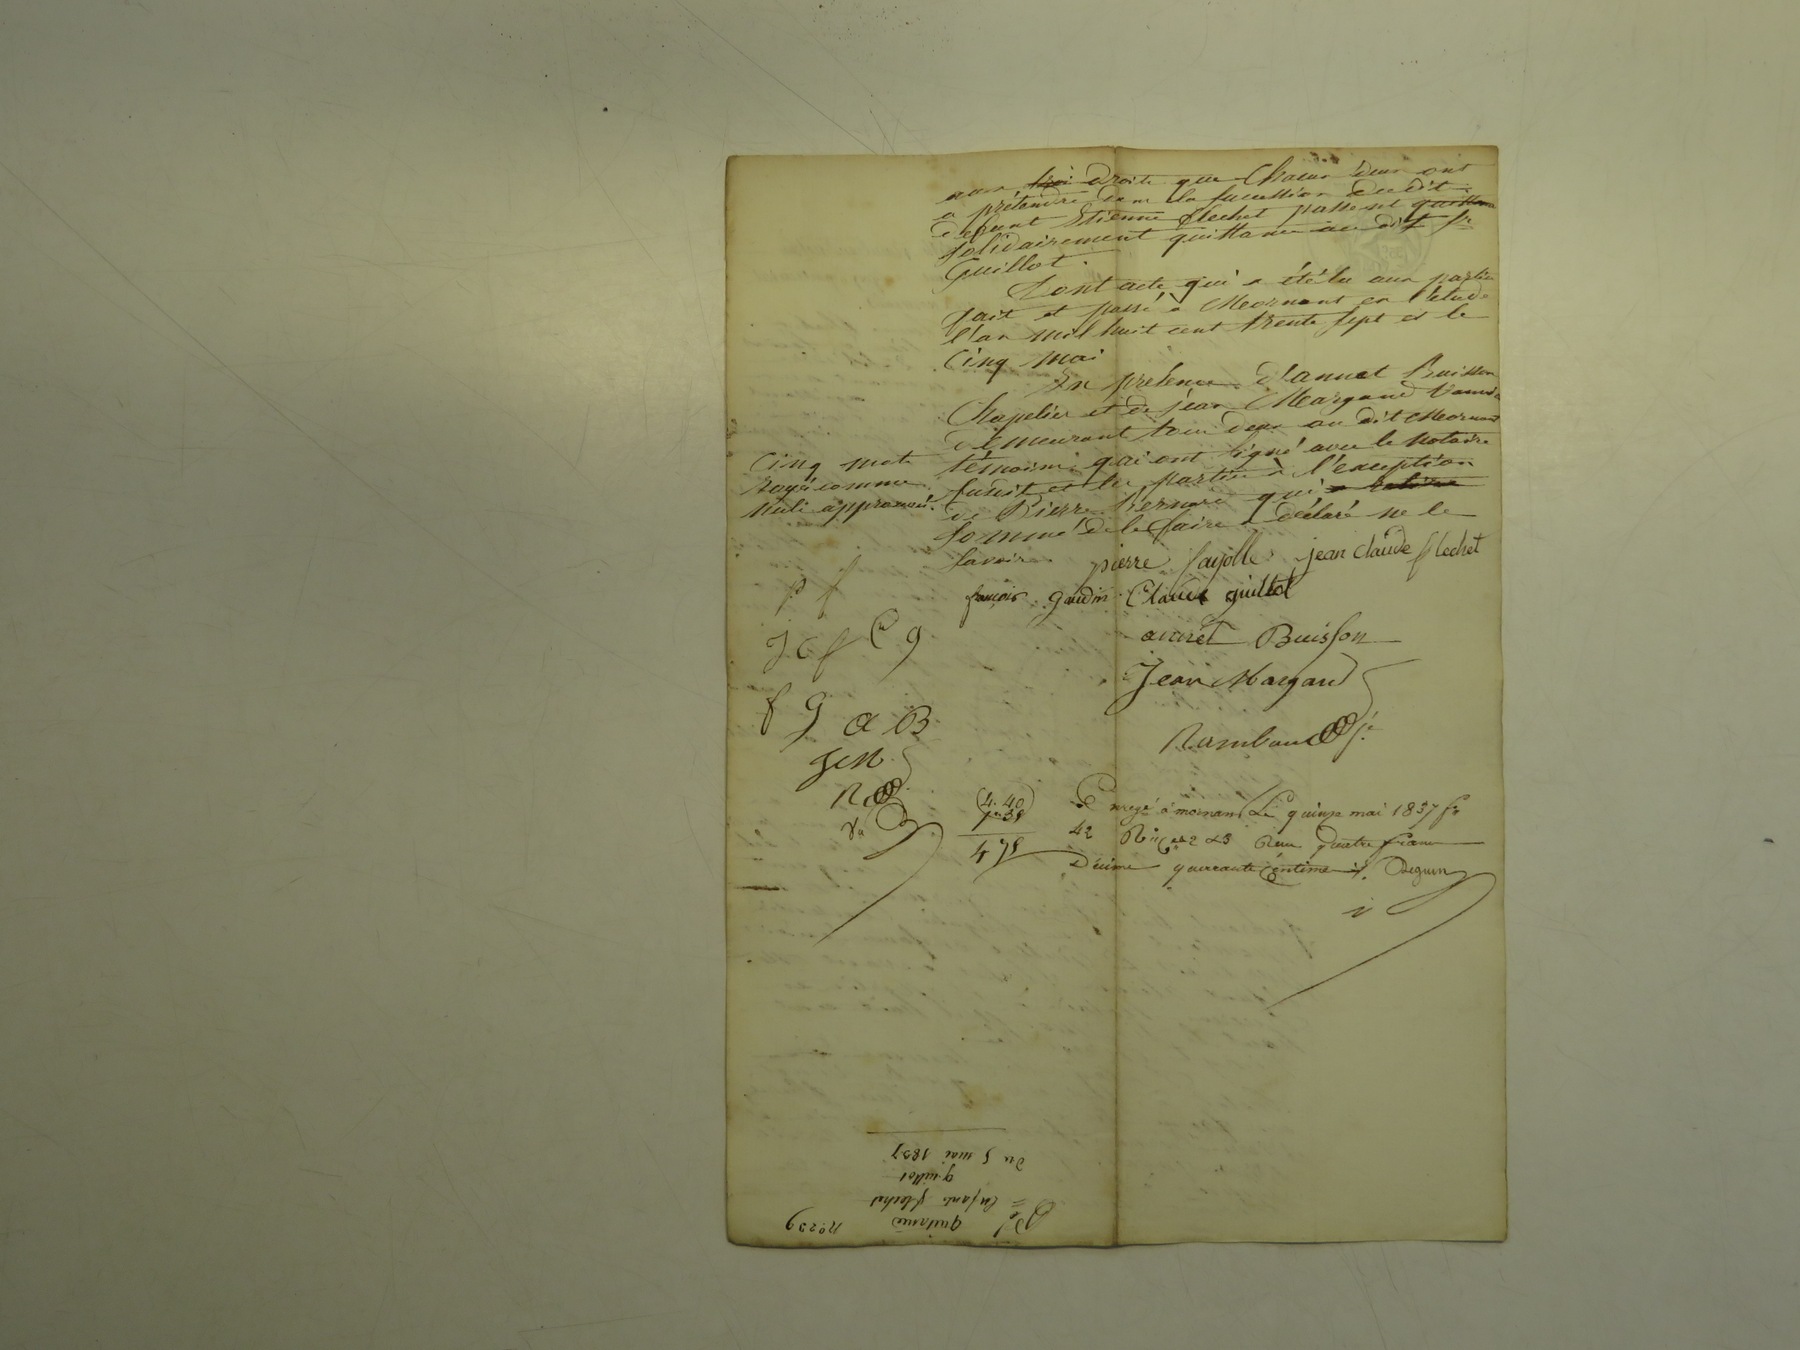 aux droits que Chacun d'eux ont
a prétendre dans la succession du dit
défunt Etienne flechet passent
solidairement quittance au dit Sr
Guillot.
Dont acte qui a été lu aux parties
fait et passé à Mornant en l'étude
l'an mil huit cent trente sept et le
Cinq mai
En présence d'annet Buisson
Chapelier et de jean Margand
demeurant tous deux au dit Mornant
témoins qui ont signé avec le Notaire
susdit et les parties à l'exception
de Pierre qui
sommé de le faire a déclaré ne le
savoir
Cinq mots
rayés comme
nuls approuvés.
pierre fayolle jean claude flechet
françois gaudin Claude guillot
annet Buisson
Jean Margand
p f
J C f C g
f g a B
R
4. 40
4 78
Enregé à mornant Le quinze mai 1837 fo
42 Ro Reçu quatre francs
Décime quarante Centimes
No 239
quitance
enfants flechet
guillot
du 5 mai 1837